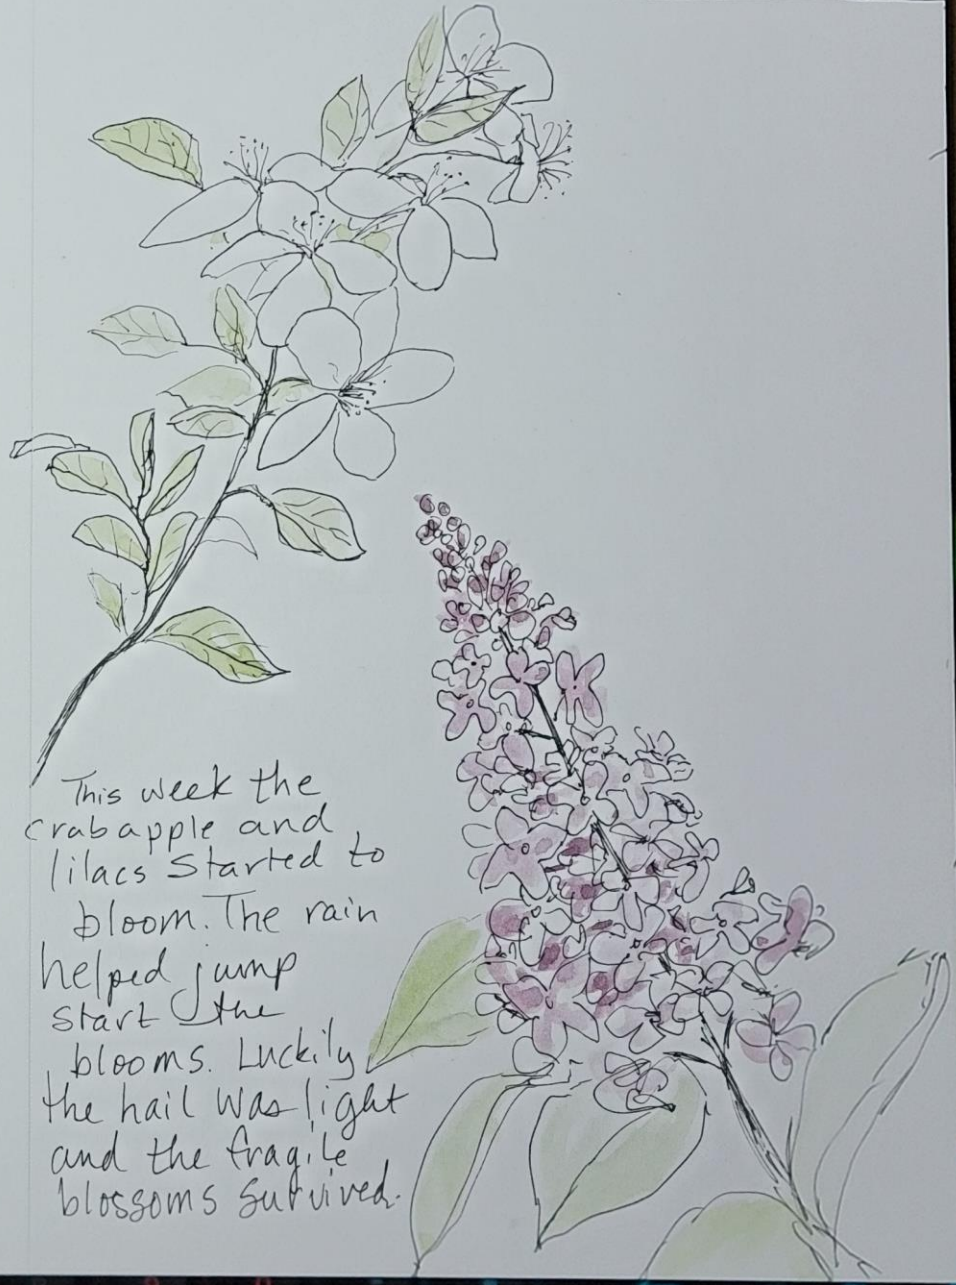 This week the
crabapple and
lilacs started to
bloom. The rain
helped jump
start the
blooms. Luckily
the hail was light
and the fragile
blossoms survived.